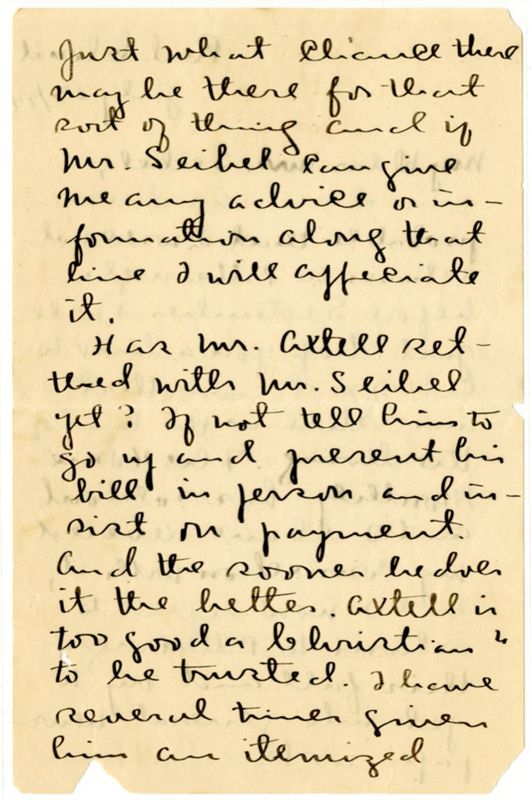 Just what chance there
may be there for that
sort of thing and if
Mr. Seibel can give
me any advice or in-
formation along that
line I will appeciate
it.
Has Mr. Axtell set-
tled with Mr. Seibel
yet? If not tell him to
go up and present his
bill in person and in-
sist on payment.
And the sooner he does
it the better. Axtell is
too good a Christian "
to be trusted. I have
several times given
him an itemized